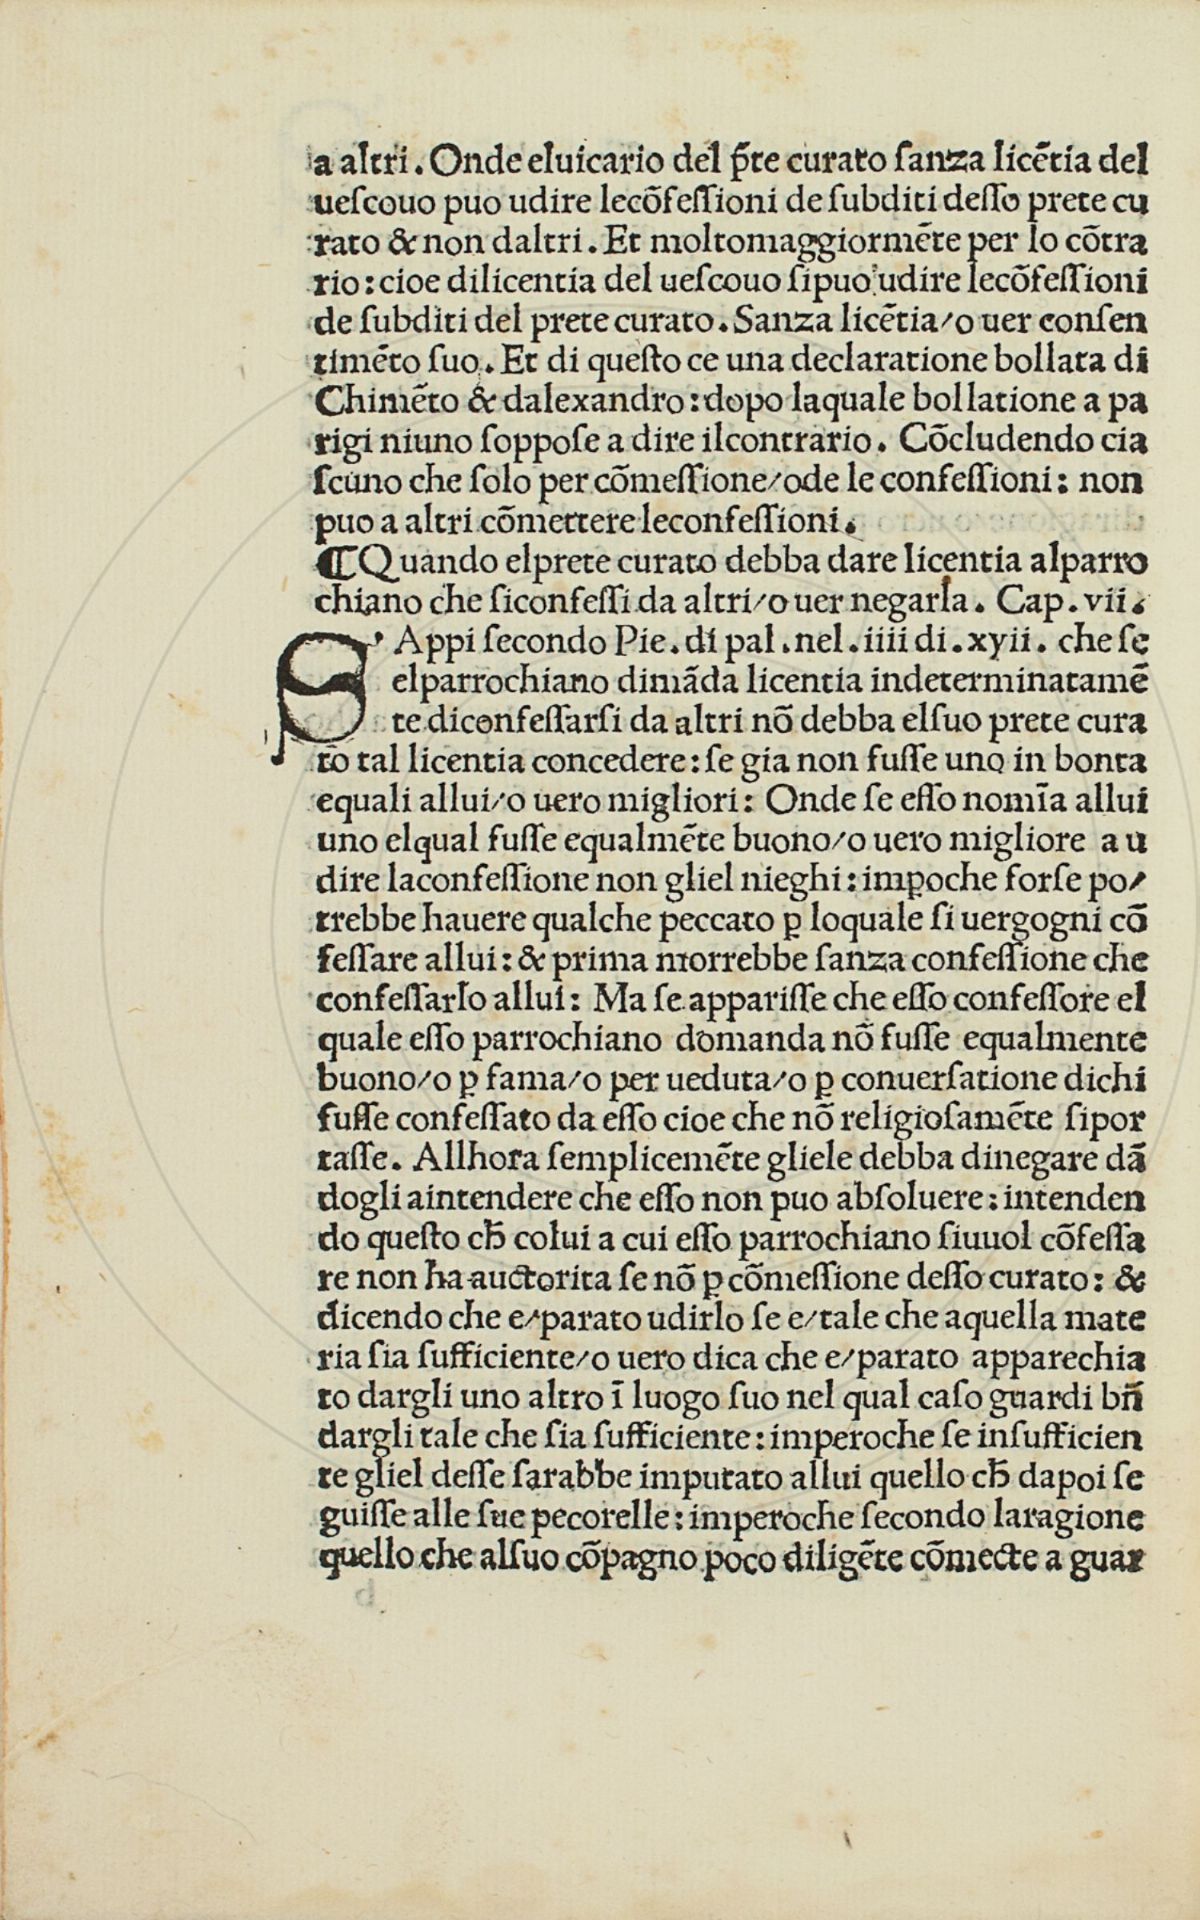 a altri. Onde eluicario del p̃te curato ſanza licẽtia del
ueſcouo puo udire lecõfeſſioni de ſubditi deſſo prete cu
rato & non daltri. Et moltomaggiormẽte per lo cõtra
rio: cioe dilicentia del ueſcouo ſipuo udire lecõfeſſioni
de ſubditi del prete curato. Sanza licẽtia/o uer conſen
timẽto ſuo. Et di queſto ce una declaratione bollata di
Chimẽto & dalexandro: dopo laquale bollatione a pa
rigi niuno ſoppoſe a dire ilcontrario. Cõcludendo cia
ſcuno che ſolo per cõmeſſione/ode le confeſſioni: non
puo a altri cõmettere leconfeſſioni.
¶Quando elprete curato debba dare licentia alparro
chiano che ſiconfeſſi da altri/o uer negarla. Cap. vii.
SAppi ſecondo Pie. di pal. nel. iiii di. xyii. che ſe
elparrochiano dimãda licentia indeterminatamẽ
te diconfeſſarſi da altri nõ debba elſuo prete cura
to tal licentia concedere: ſe gia non fuſſe uno in bonta
equali allui/o uero migliori: Onde ſe eſſo nomĩa allui
uno elqual fuſſe equalmẽte buono/o uero migliore a u
dire laconfeſſione non gliel nieghi: imꝑoche forſe po/
trebbe hauere qualche peccato ꝑ loquale ſi uergogni cõ
feſſare allui: & prima morrebbe ſanza confeſſione che
confeſſarlo allui: Ma ſe appariſſe che eſſo confeſſore el
quale eſſo parrochiano domanda nõ fuſſe equalmente
buono/o ꝑ fama/o per ueduta/o ꝑ conuerſatione dichi
fuſſe confeſſato da eſſo cioe che nõ religioſamẽte ſipor
taſſe. Allhora ſemplicemẽte gliele debba dinegare dã
dogli aintendere che eſſo non puo abſoluere: intenden
do queſto cħ colui a cui eſſo parrochiano ſiuuol cõfeſſa
re non ha auctorita ſe nõ ꝑ cõmeſſione deſſo curato: &
dicendo che e/parato udirlo ſe e/tale che aquella mate
ria ſia ſufficiente/o uero dica che e/parato apparechia
to dargli uno altro ĩ luogo ſuo nel qual caſo guardi bñ
dargli tale che ſia ſufficiente: imperoche ſe inſufficien
te gliel deſſe ſarabbe imputato allui quello cħ dapoi ſe
guiſſe alle ſue pecorelle: imperoche ſecondo laragione
quello che alſuo cõpagno poco diligẽte cõmecte a guar